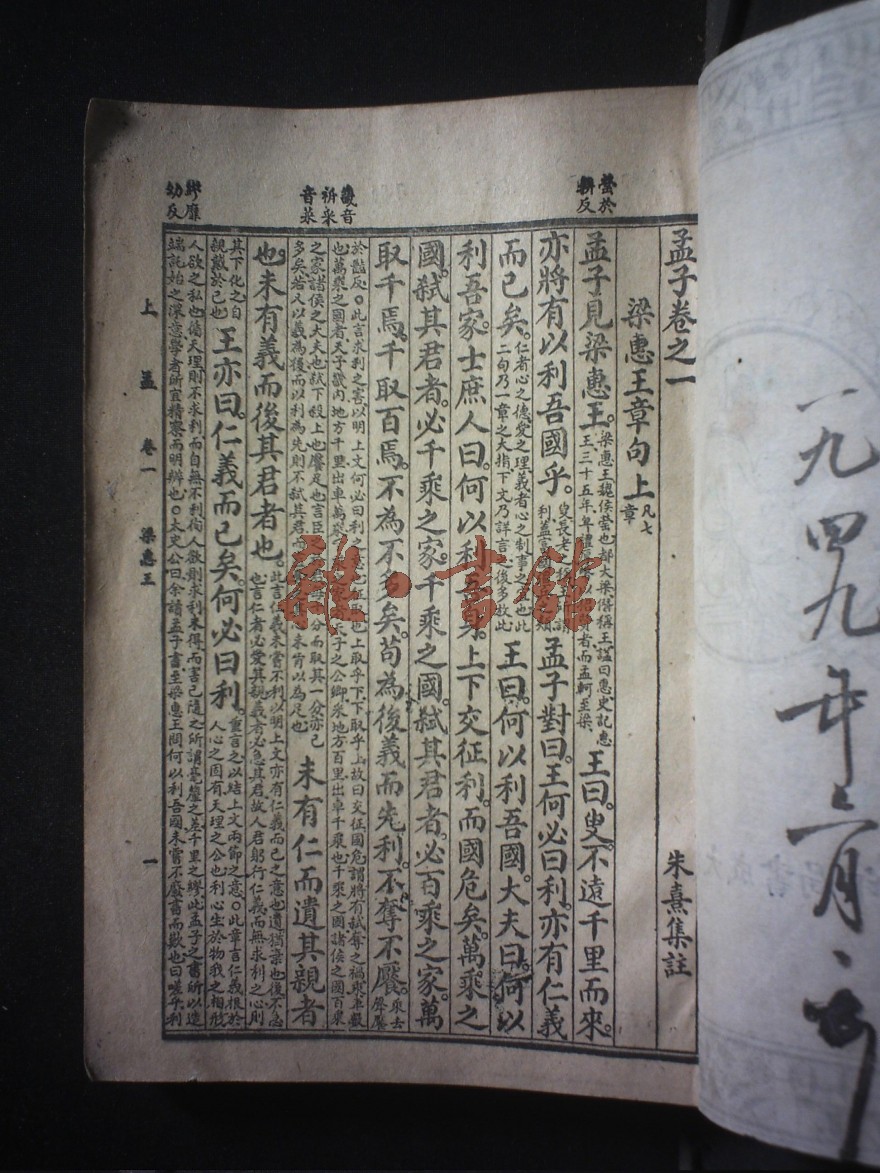 孟子卷之一
朱熹集註
梁惠王章句上
凡七章
孟子見梁惠王。
梁惠王魏侯罃也都大梁僭稱王謚曰惠史記惠
王三十五年
者而孟軻至梁
王曰。叟。不遠千里而來。
亦將有以利吾國乎。
叟長老
孟子對曰。王何必曰利。亦有仁義
而已矣。
仁者心之德愛之理義者心之制事之
也此
二句乃一章之大指下文乃詳言
後多放此
王曰。何以利吾國。大夫曰。何以
利吾家。士庶人曰。何以利吾身。上下交征利。而國危矣。萬乘之
國。弒其君者。必千乘之家。千乘之國。弒其君者。必百乘之家。萬
取千焉。千取百焉。不為不多矣。苟為後義而先利。不奪不饜。
乘去
聲饜
於豔反。此言求利之害以明上文何必曰利之意
取也上取乎下下取乎上故曰交征國危謂將有弒奪之禍乘車數
也萬乘之國者天子畿內地方千里出車萬乘
天子之公卿采地方百里出車千乘也千乘之國諸侯之國百乘
之家諸侯之大夫也弒下殺上也饜足也言臣之
分而取其一分亦已
多矣若又以義為後而以利為先則不弒其君而
未肯以為足也
未有仁而遺其親者
也。未有義而後其君者也。
此言仁義未嘗不利以明上文亦有仁義而已之意也遺猶棄也後不急
也言仁者必愛其親義者必急其君故人君躬行仁義而無求利之心則
其下化之自
親戴於己也
王亦曰。仁義而已矣。何必曰利。
重言之以結上文兩節之意。此章言仁義根於
人心之固有天理之公也利心生於物我之相形
人欲之私也循天理則不求利而自無不利徇人欲則求利未得而害已隨之所謂毫釐之差千里之繆此孟子之書所以造
端託始之深意學者所宜精察而明辨也。太史公曰余讀孟子書至梁惠王問何以利吾國未嘗不廢書而歎也曰嗟乎利
罃於
耕反
饜音
采
音菜
繆靡
幼反
上孟 卷一 梁惠王 一
一九四九年六月
雜·書館